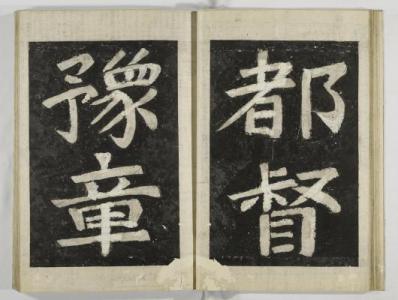 都督
豫章